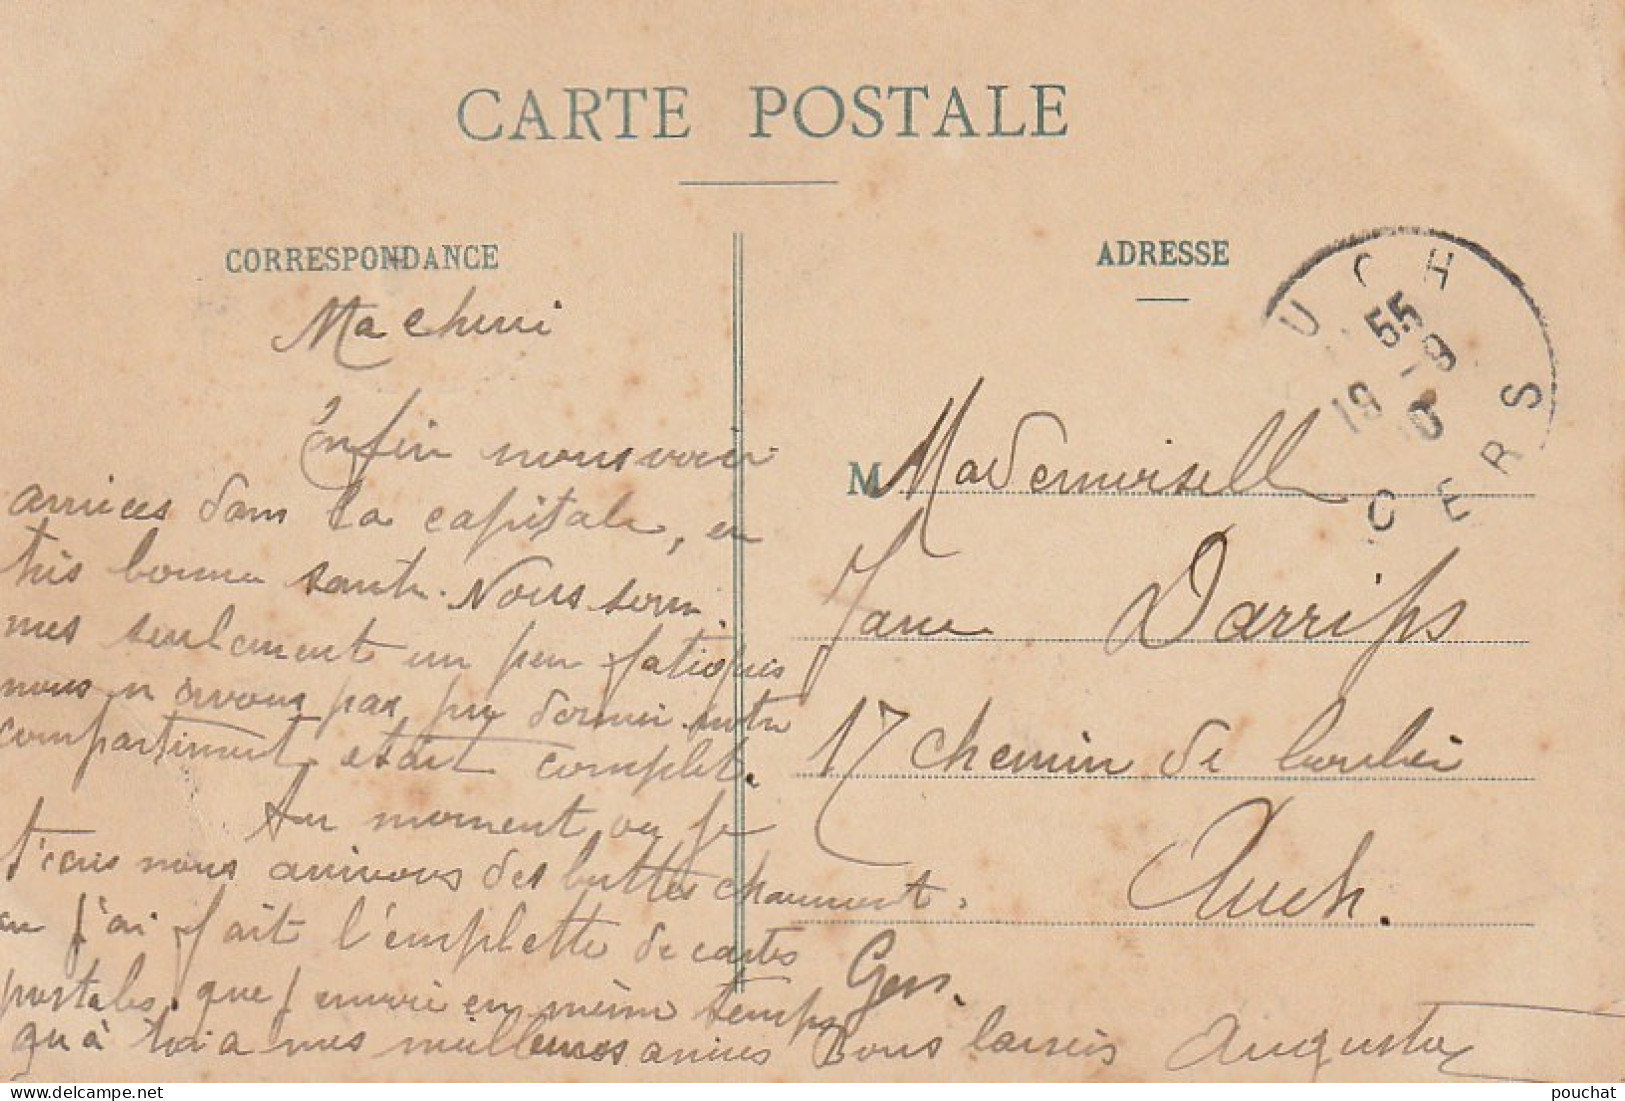 CARTE POSTALE
CORRESPONDANCE
Ma cherie
Enfin nous voici
arrivées dans la capitale, en
très bonne santé. Nous som
mes seulement un peu fatiguées
nous n'avons pas pu dormir notre
compartiment etait complet.
Au moment ou je
t'ecris nous arrivons des buttes chaumont.
ou j'ai fait l'emplette de cartes
postales que j'envoie en même temps
qu'à toi a mes meilleures amies Bons baisers Augusta
ADRESSE
M Mademoiselle
Jane Darrips
17 chemin de
Auch.
Gers.
UCH
55
19 - 9
10
GERS
pouchat